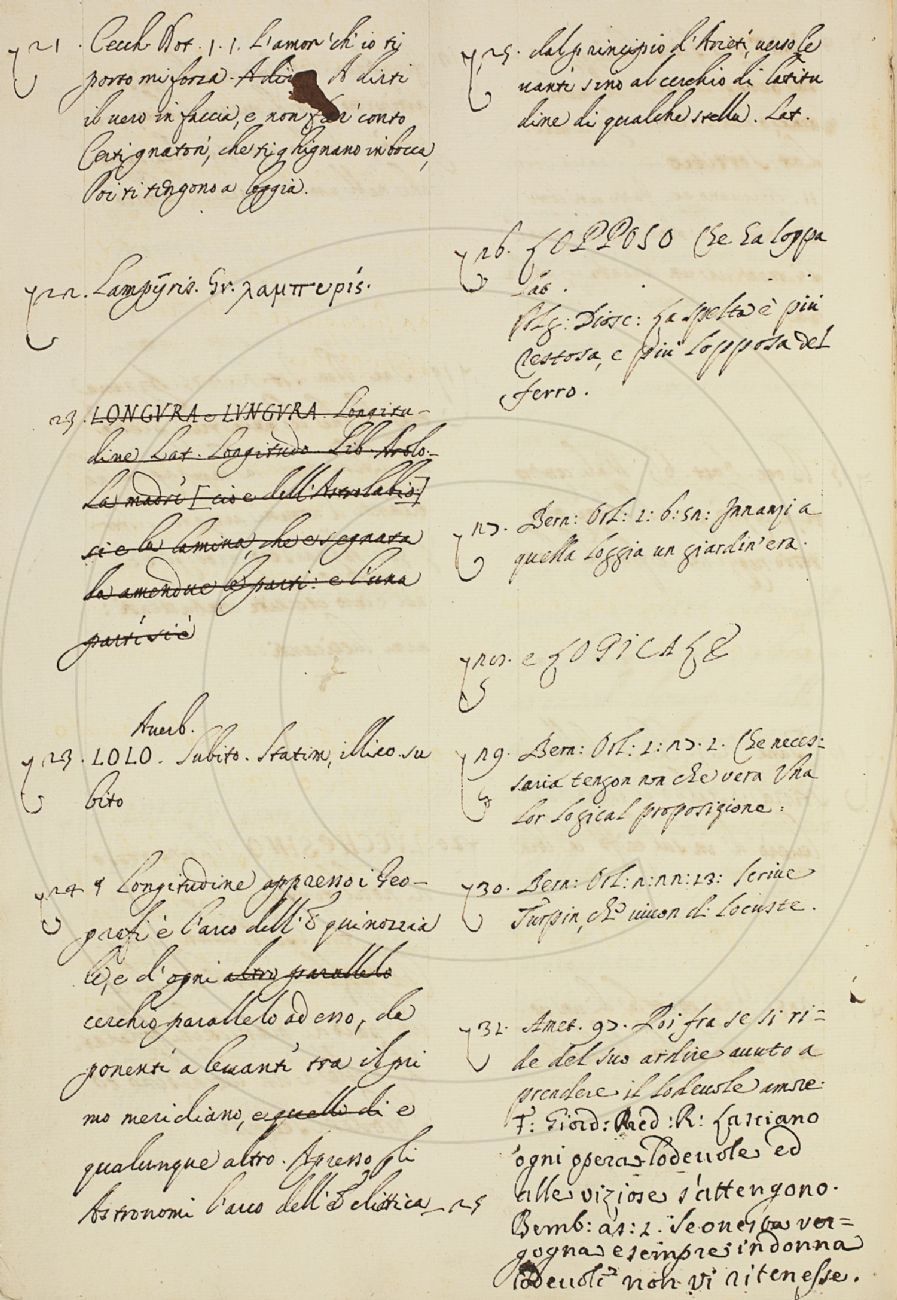 21. Cecch. Dot. 1. 1. L'amor' ch' io ti
porto mi forza. A dirti
il vero in faccia, e non far' conto
Certi gnatoni, che ti ghignano in bocca,
Poi ti tengono a loggia.
22. Lampyris. Gr. λαμπυρίς.
23. LONGVRA e LVNGVRA. Longitu-
dine Lat. Longitudo. Lib. Astrol.
La madre [cioe dell'Astrolabio]
si e la lamina, che e segnata
da amendue le parti: e l'una
parte si è
Averb.
23. LOLO. Subito. Statim, illico. su
bito
24 ¶ Longitudine appresso i Geo-
grafi è l'arco dell' Equinozzia
le, e d' ogni altro parallelo
cerchio parallelo ad esso, da
ponente a levante tra il pri
mo meridiano, e quello di e
qualunque altro. Apresso gli
Astronomi l'arco dell' Eclittica 25
25. dal principio d' Ariete, verso le
vante sino al cerchio di latitu
dine di qualche stella. Lat.
26. LOPPOSO Che ha loppa
Lat.
Diosc: La spelta è più
restosa, e più lopposa del
ferro.
27. Bern: Orl: 2: 6: 52: Innanzi a
quella loggia un giardin' era.
28. e LOGICALE
29. Bern: Orl: 1: 27. 2. Che neces=
saria tengon non che vera Una
lor logical proposizione.
30. Bern: Orl: 2: 22: 13: Scrive
Turpin, che vivon di locuste.
31. Amet. 97. Poi fra se si ri=
de del suo ardire avuto a
prendere il lodevole amore.
F: Giord: Pred: R: Lasciano
ogni opera lodevole, ed
alle viziose s'attengono.
Bemb: as: 2. Se onesta ver=
gogna e sempre in donna
lodevole non vi ritenesse.